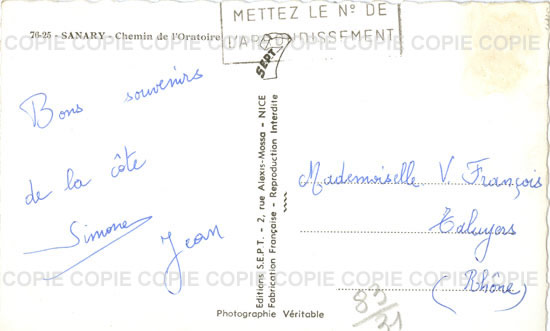 76-25 - SANARY - Chemin de l'Oratoire
METTEZ LE Nº DE
L'ARRONDISSEMENT
COPIE COPIE COPIE COPIE COPIE COPIE COPIE COPIE
Bons souvenirs
de la côte
Simone
Jean
SEPT
Editions S.E.P.T. - 2, rue Alexis-Mossa - NICE
Fabrication Française - Reproduction Interdite
Mademoiselle V François
Taluyers
(Rhône)
COPIE COPIE COPIE COPIE COPIE COPIE COPIE COPIE
83/21
Photographie Véritable